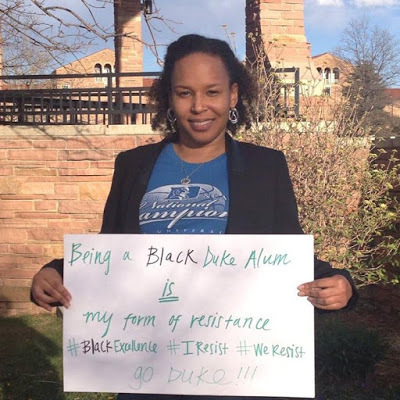 National
Champions
UNIVERSITY
Being a Black Duke Alum
is
my form of resistance
#BlackExcellence #IResist #WeResist
go DUKE!!!